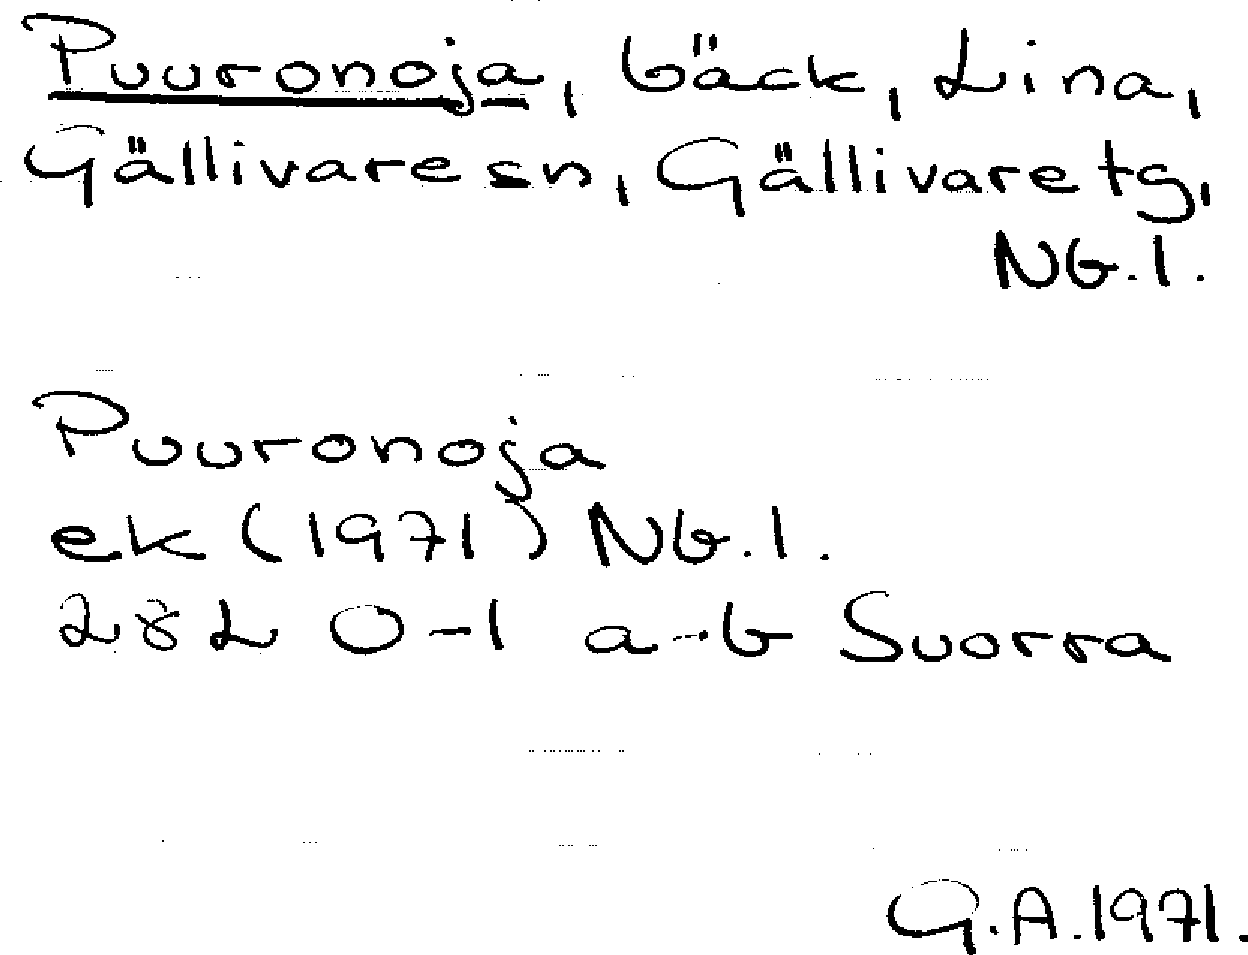 Puuronoja, bäck, Lina,
Gällivare sn, Gällivare tg,
Nb. l.
Puuronoja
ek (1971) Nb. l.
28L 0-1 a-b Suorra
G.A. 1971.